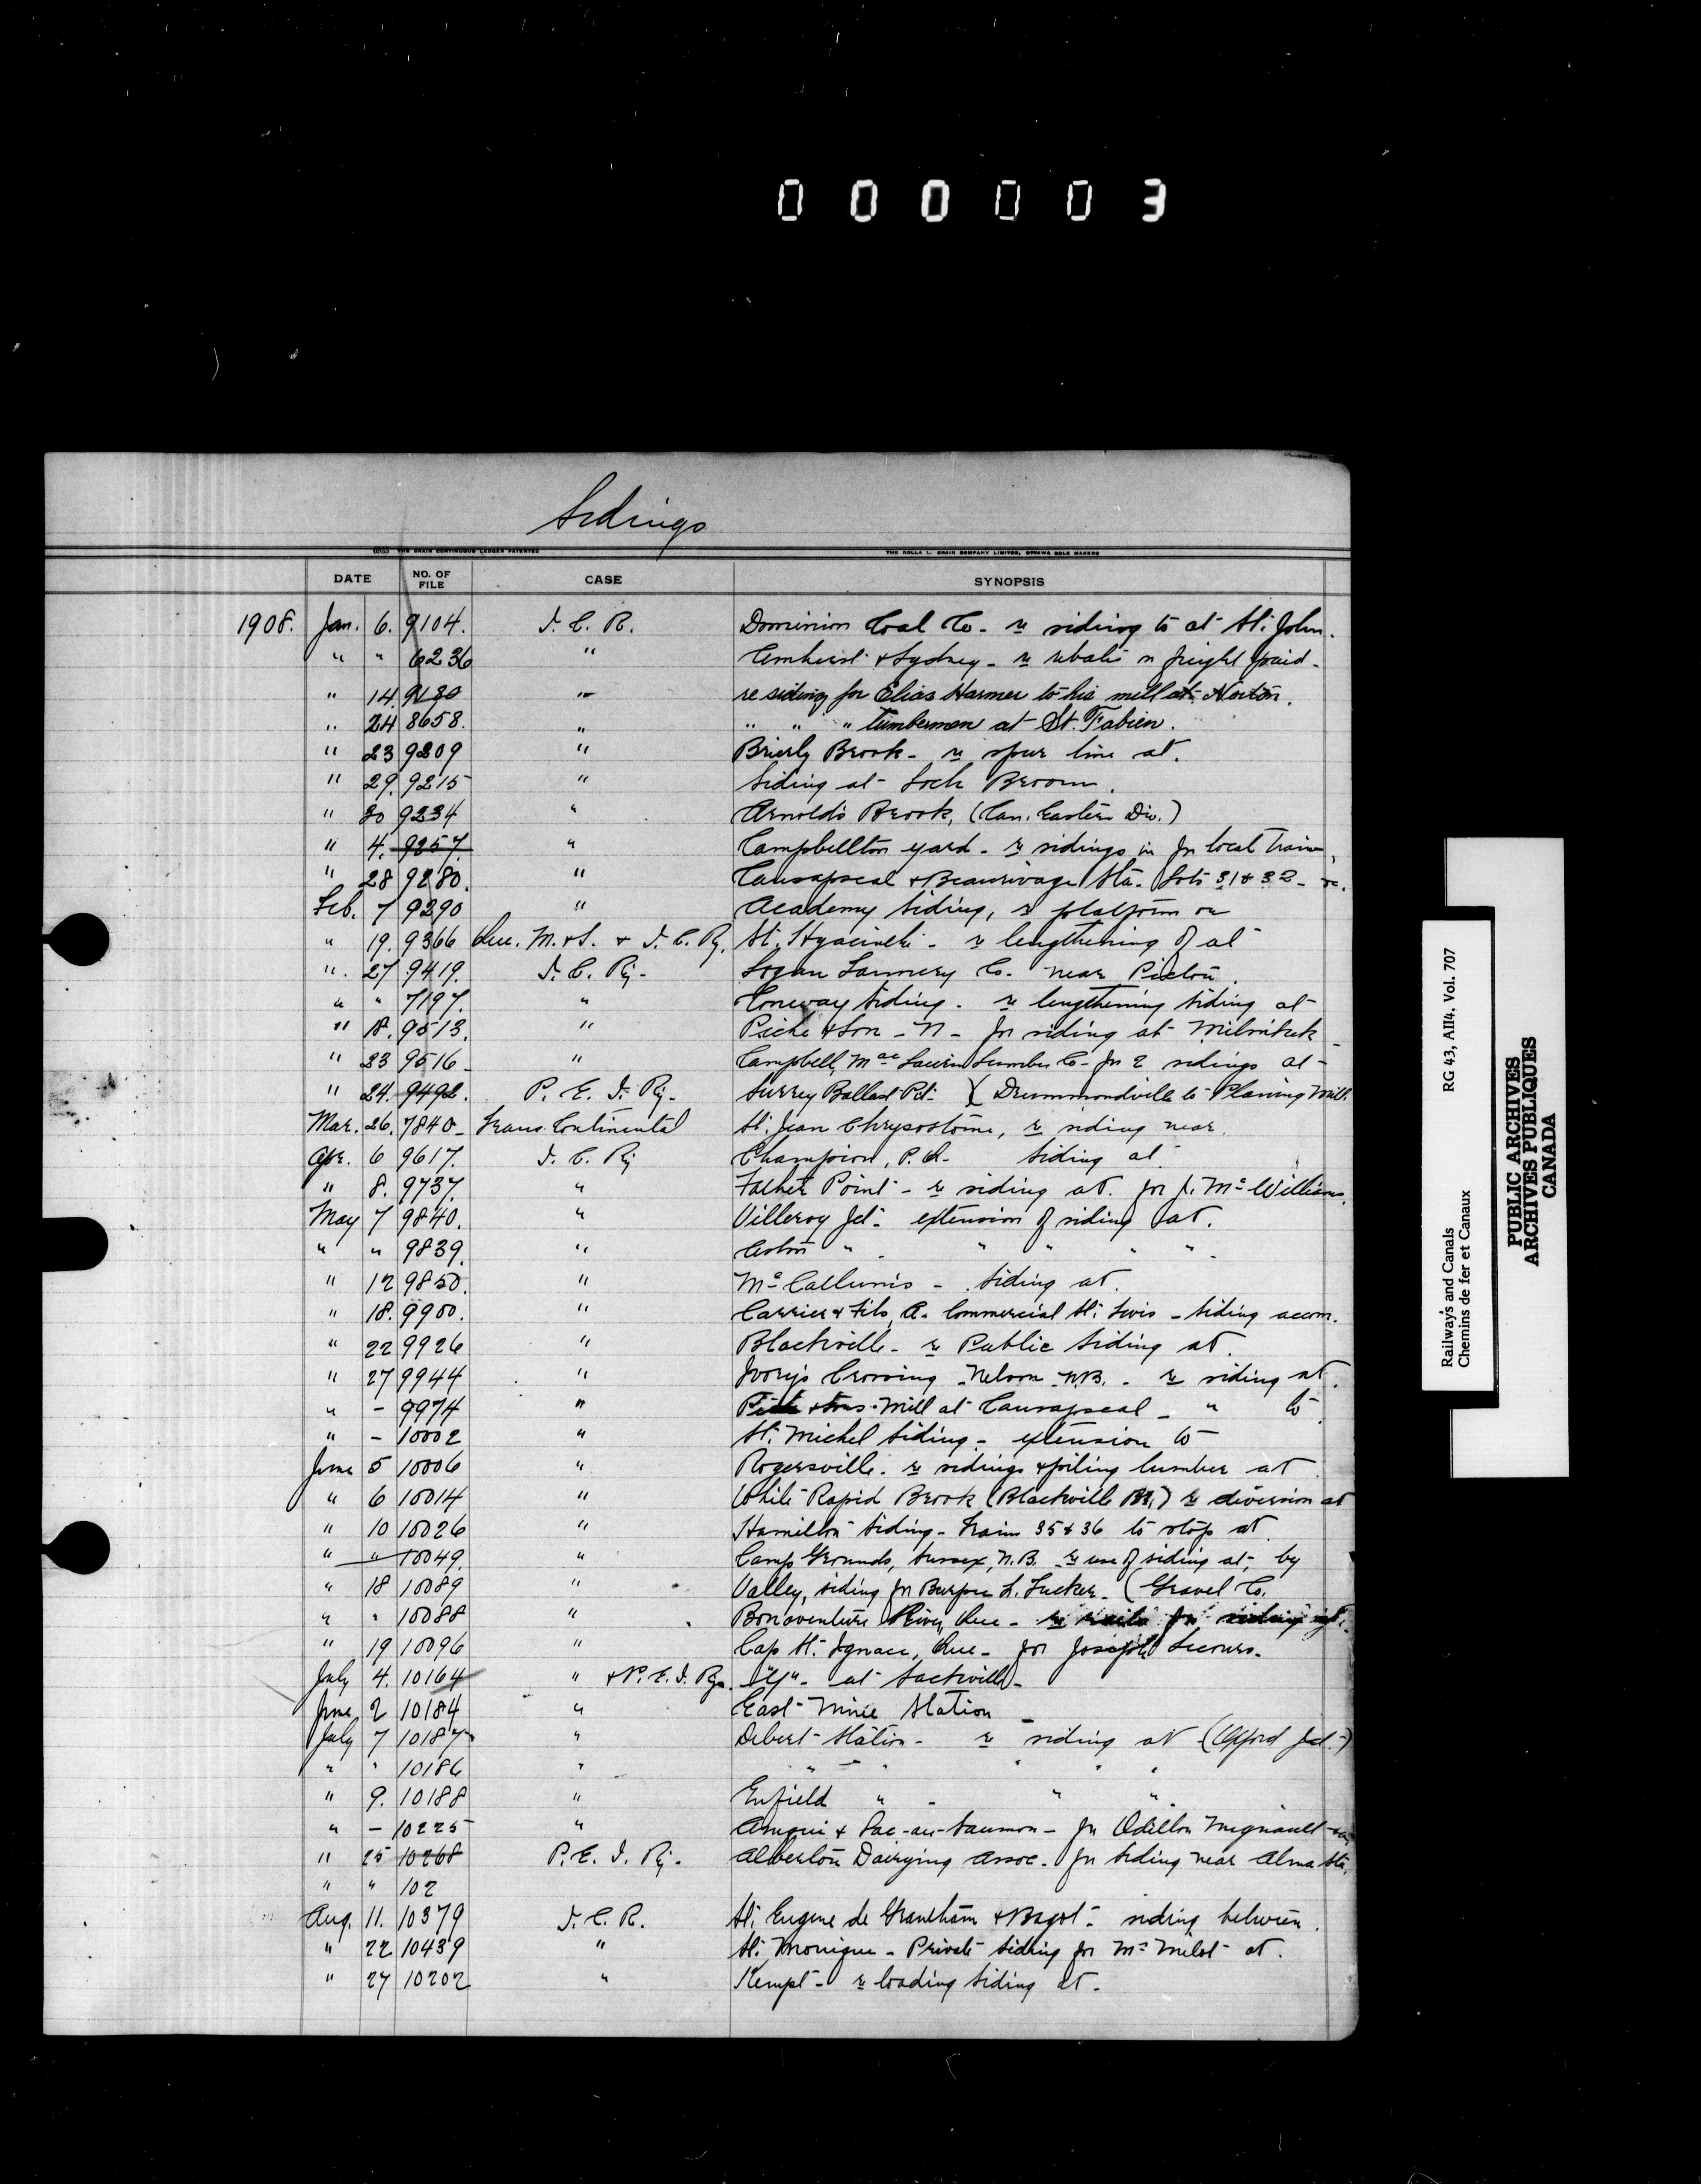 000003
Sidings
THE CRAIN CONTINUOUS LEDGER PATENTED THE ROLLA L. CRAIN COMPANY LIMITED, OTTAWA SOLE MAKERS
DATE NO. OF FILE CASE SYNOPSIS
1908. Jan. 6. 9104. I. C. R. Dominion Coal Co. - re siding to at St. John.
" " 6236 " Amherst & Sydney - re rebate on freight paid -
" 14. 9180 " re siding for Elias Harmer to his mill at Norton.
" 24 8658. " " " " lumbermen at St. Fabien.
" 23 9209 " Brierly Brook - re spur line at.
" 29. 9215 " Siding at Loch Broom.
" 30 9234 " Arnold's Brook, (Can. Eastern Div.)
" 4. 9257. " Campbellton yard - re sidings in for local trains,
" 28 9280. " Causapscal & Beaurivage Sta. Lots 31 & 32 - re.
Feb. 7 9290 " Academy Siding, re platform on
" 19. 9366 Que. M. & S. & I. C. Ry. St. Hyacinthe - re lengthening of at
" 27 9419. I. C. Ry. Logan Tannery Co. near Pictou.
" " 7197. " Conway Siding - re lengthening siding at
" 18. 9513. " Piché & Son - N - for siding at Milnikek
" 23 9516 " Campbell, Mac Lumber Co - for 2 sidings at -
" 24. 9492. P. E. I. Ry. Surrey Ballast Pit - )( Drummondville to Planing Mill.
Mar. 26. 7840 - Trans. Continental St. Jean Chrysostome, re siding near.
Apr. 6 9617. I. C. Ry Champion, P.Q. Siding at
" 8. 9737. " Father Point - re siding at. for J. Mc Williams.
May 7 9840. " Villeroy Jct. extension of siding at.
" " 9839. " Aston " . " " " " .
" 12 9850. " Mc Callum's - Siding at
" 18. 9900. " Carrier & Fils, A. Commercial St. Levis - Siding accom.
" 22 9926 " Blackville - re Public Siding at.
" 27 9944 " Ivory's Crossing - Nelson - N.B. - re siding at.
" - 9974 " & Sons Mill at Causapscal - " to
" - 10002 " St. Michel Siding - extension to
June 5 10006 " Rogersville. re sidings & piling lumber at
" 6 10014 " White Rapid Brook (Blackville Br.) re diversion at
" 10 10026 " Hamilton Siding - Trains 35 & 36 to stop at
" " 10049. " Camp Grounds, Sussex, N.B. - re use of siding at, by
" 18 10089 " Valley, siding for Burpee L. Tucker - (Gravel Co.
" " 10088 " Bonaventure River, Que -
" 19 10096 " Cap St. Ignace, Que - for Joseph Lecours.
July 4. 10164 " & P. E. I. Rys. "Y" - at Sackville -
June 2 10184 " East Mines Station -
July 7 10187 " Debert Station - re siding at (Oxford Jct.)
" " 10186 " " - " " "
" 9. 10188 " Enfield " - " " .
" - 10225 " Amqui & Lac-au-Saumon - for Odillon Mignault
" 25 10268 P. E. I. Ry. Alberton Dairying Assoc. for Siding near Alma Sta.
" " 102
Aug. 11. 10379 I. C. R. St. Eugene de Grantham & Bagot - siding between.
" 22 10439 " St. Monique - Private Siding for Mr Milot at.
" 27 10202 " Kempt - re loading Siding at.
Railways and Canals
Chemins de fer et Canaux
RG 43, AII4, Vol. 707
PUBLIC ARCHIVES
ARCHIVES PUBLIQUES
CANADA